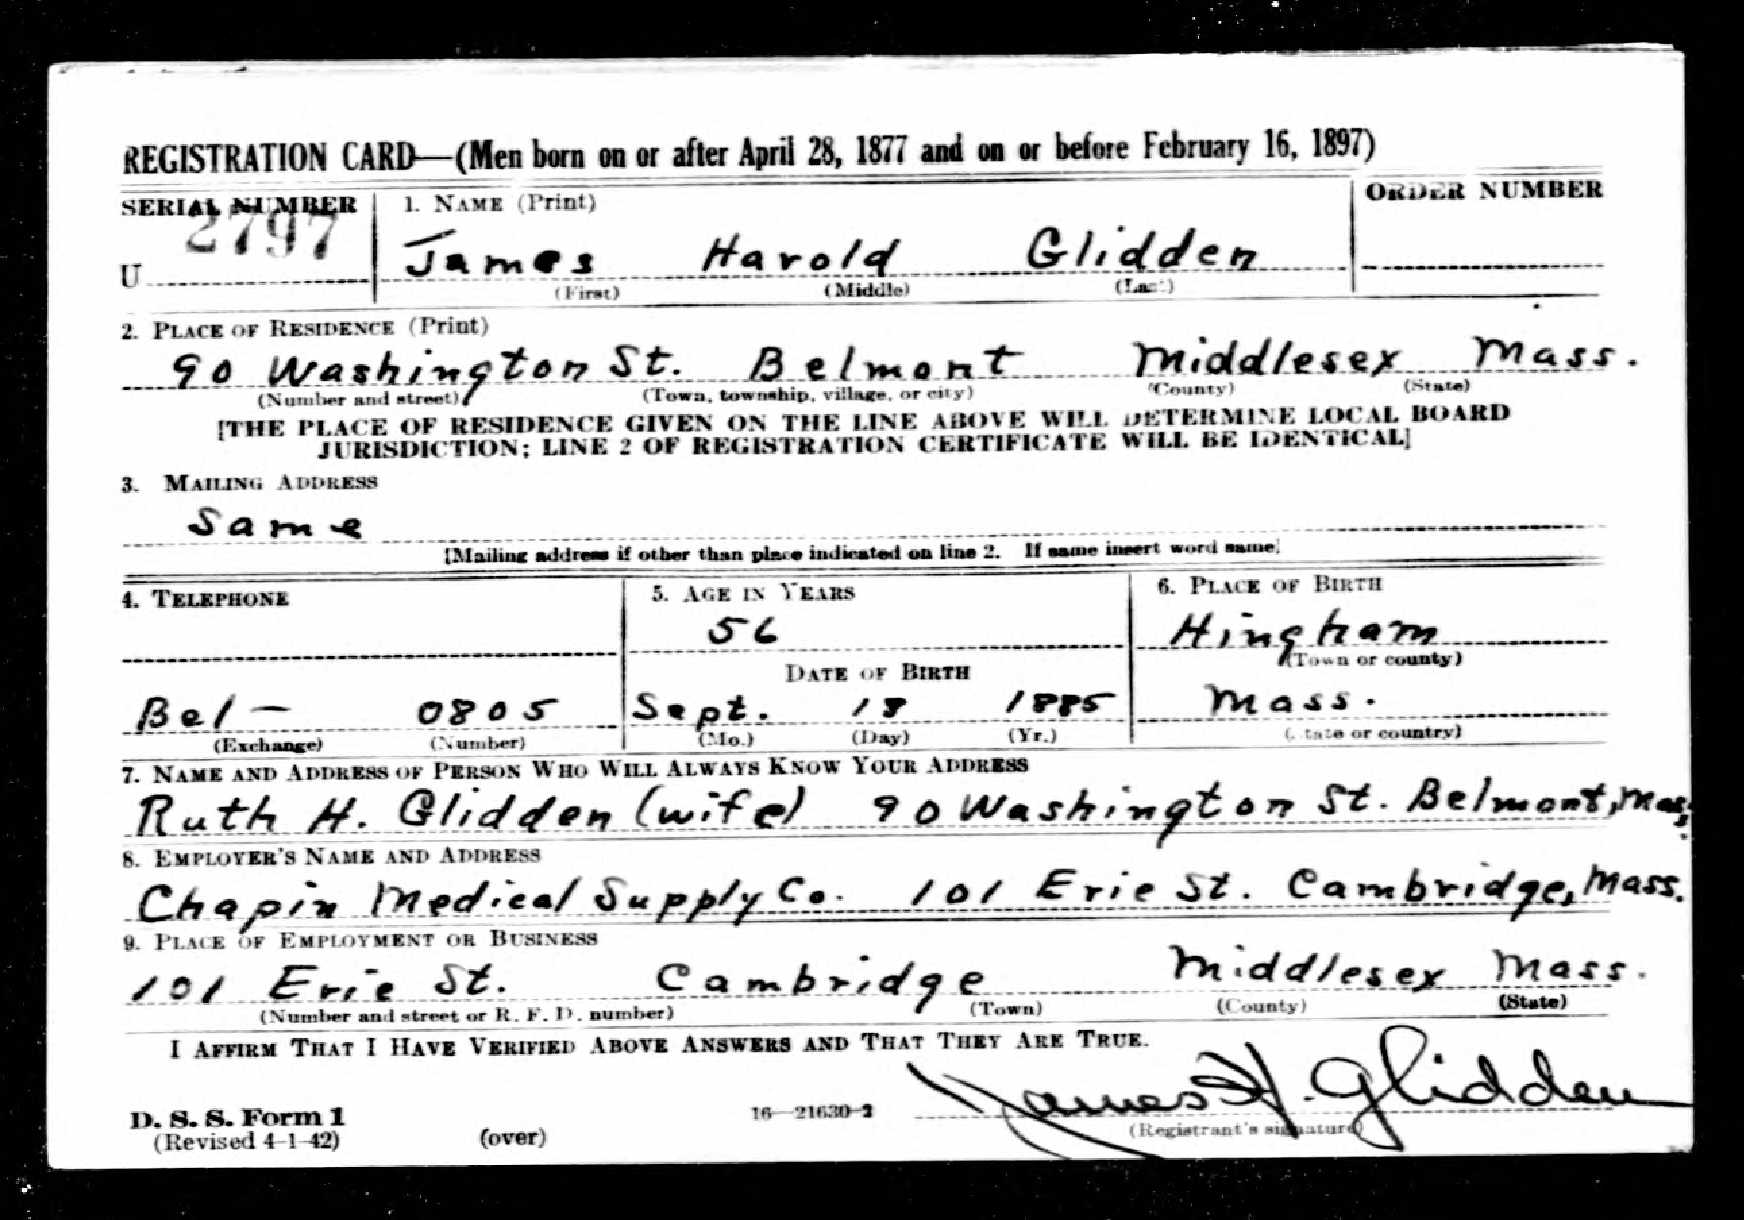 REGISTRATION CARD—(Men born on or after April 28, 1877 and on or before February 16, 1897)
SERIAL NUMBER 1. NAME (Print) ORDER NUMBER
2797
U James Harold Glidden
(First) (Middle) (Last)
2. PLACE OF RESIDENCE (Print)
90 Washington St. Belmont Middlesex Mass.
(Number and street) (Town, township, village, or city) (County) (State)
[THE PLACE OF RESIDENCE GIVEN ON THE LINE ABOVE WILL DETERMINE LOCAL BOARD
JURISDICTION; LINE 2 OF REGISTRATION CERTIFICATE WILL BE IDENTICAL]
3. MAILING ADDRESS
Same
[Mailing address if other than place indicated on line 2. If same insert word same]
4. TELEPHONE 5. AGE IN YEARS 6. PLACE OF BIRTH
56 Hingham
(Town or county)
DATE OF BIRTH
Bel- 0805 Sept. 18 1885 Mass.
(Exchange) (Number) (Mo.) (Day) (Yr.) (State or country)
7. NAME AND ADDRESS OF PERSON WHO WILL ALWAYS KNOW YOUR ADDRESS
Ruth H. Glidden (wife) 90 Washington St. Belmont, Mass.
8. EMPLOYER'S NAME AND ADDRESS
Chapin Medical Supply Co. 101 Erie St. Cambridge, Mass.
9. PLACE OF EMPLOYMENT OR BUSINESS
101 Erie St. Cambridge Middlesex Mass.
(Number and street or R. F. D. number) (Town) (County) (State)
I AFFIRM THAT I HAVE VERIFIED ABOVE ANSWERS AND THAT THEY ARE TRUE.
James H. Glidden
D. S. S. Form 1 16—21630-2 (Registrant's signature)
(Revised 4-1-42) (over)